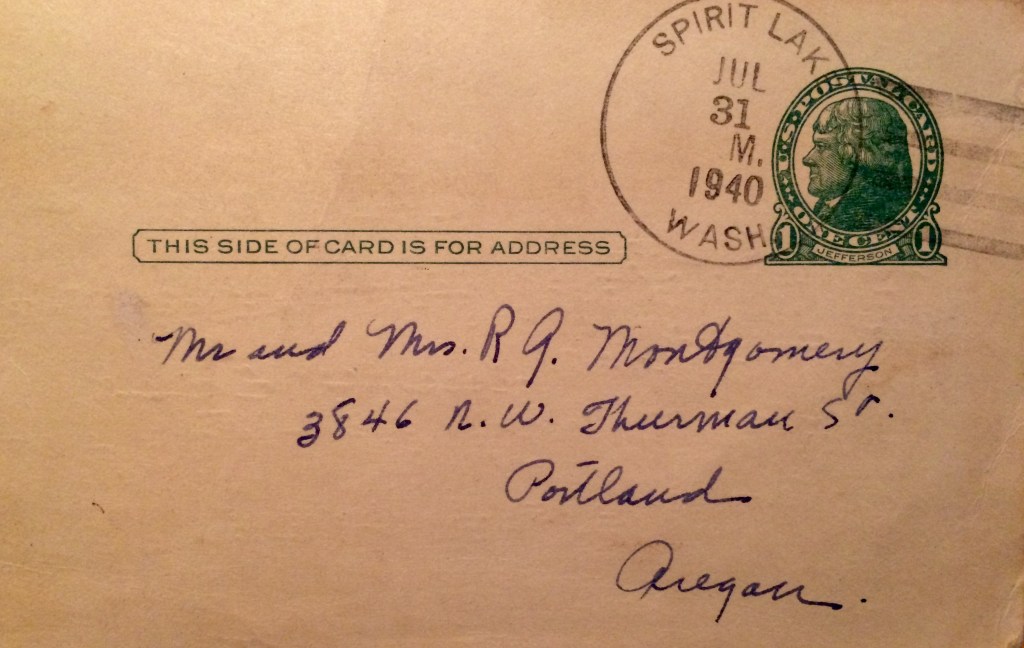 SPIRIT LAK
JUL
31
M.
1940
WASH
U.S. POSTAL CARD
ONE CENT
1 JEFFERSON 1
THIS SIDE OF CARD IS FOR ADDRESS
Mr and Mrs. R G. Montgomery
3846 N.W. Thurman St.
Portland
Oregon.